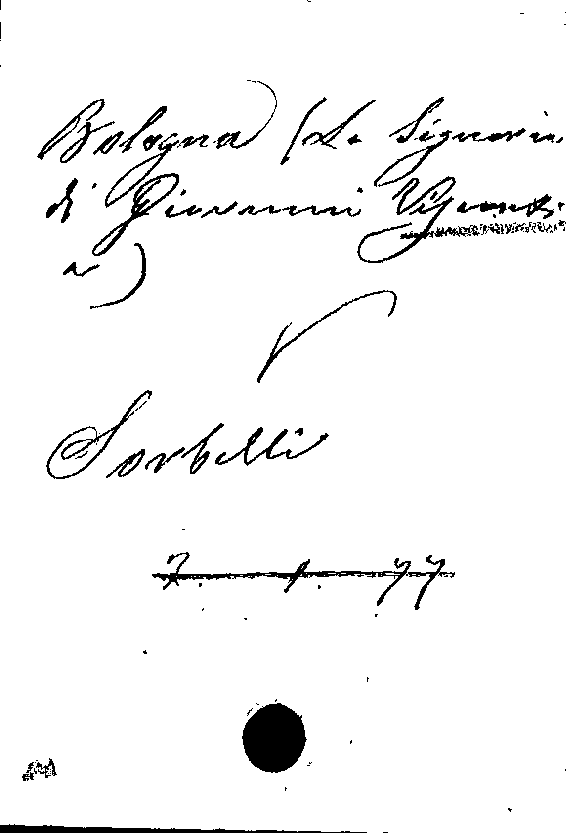 Bologna (La Signoria
di Giovanni
a)
Sorbelli
7. 1. 77